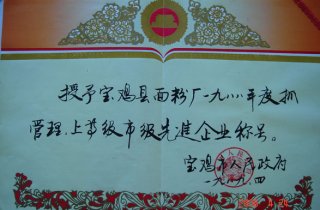 授予宝鸡县面粉厂一九八八年度抓
管理、上等级市级先进企业称号。
宝鸡市人民政府
一九八九.四